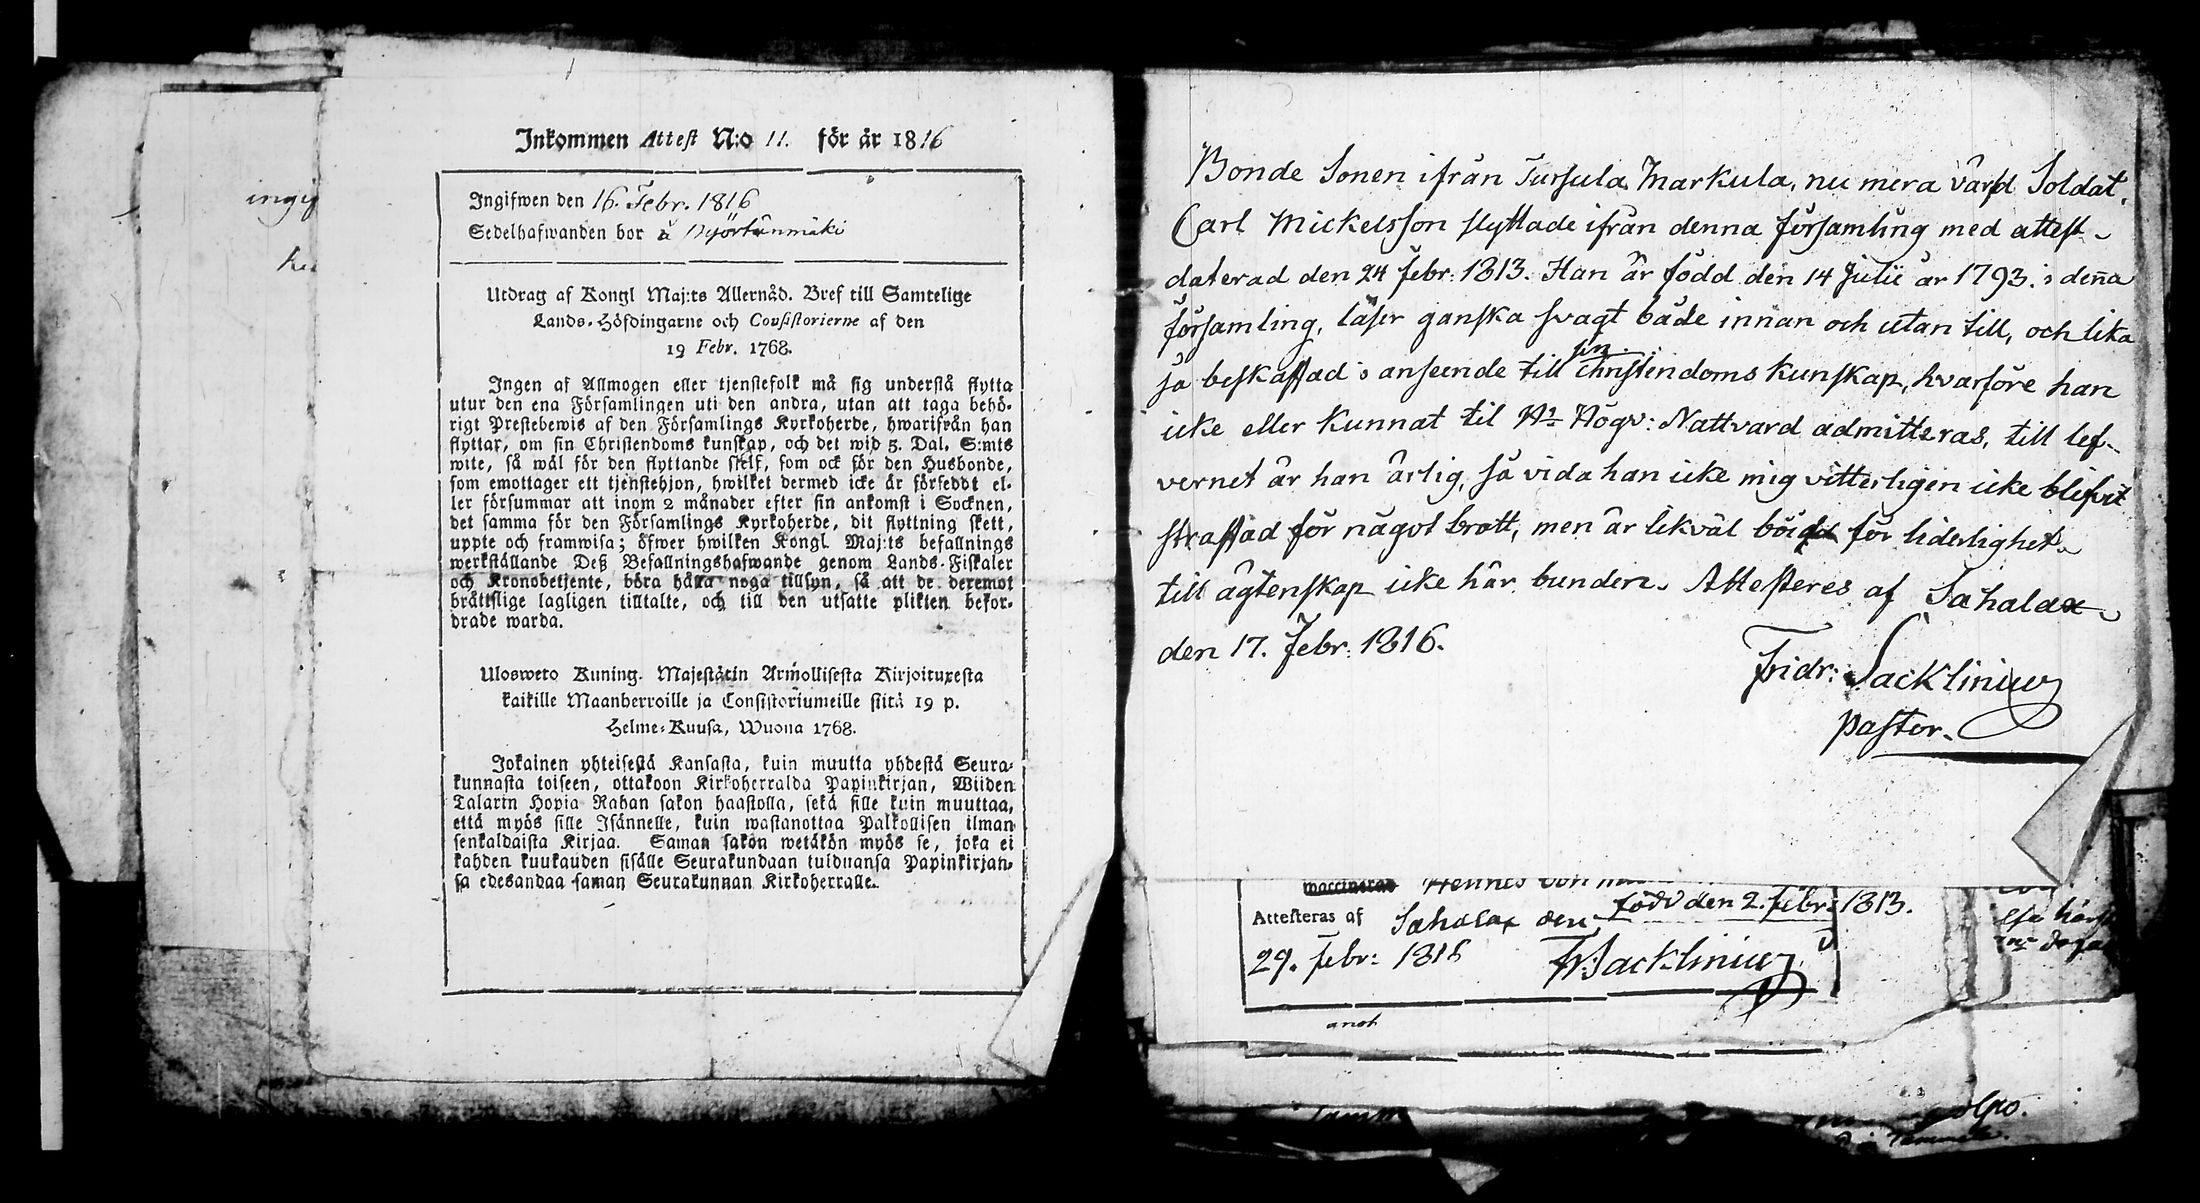 Inkommen Attest N:o 11. för år 1816
Ingifwen den 16. Febr. 1816
Sedelhafwanden bor å
Utdrag af Kongl Maj:ts Allernåd. Bref till Samtelige
Lands-Höfdingarne och Consistorierne af den
19 Febr. 1768.
Ingen af Allmogen eller tjenstefolk må sig understå flytta
utur den ena Församlingen uti den andra, utan att taga behö-
rigt Prestebewis af den Församlings Kyrkoherde, hwarifrån han
flyttar, om sin Christendoms kunskap, och det wid 5. Dal. S:mts
wite, så wäl för den flyttande sielf, som ock för den Husbonde,
som emottager ett tjenstehjon, hwilket dermed icke är försedt el-
ler försummar att inom 2 månader efter sin ankomst i Socknen,
det samma för den Församlings Kyrkoherde, dit flyttning skett,
uppte och framwisa; öfwer hwilken Kongl. Maj:ts befallnings
werkställande Deß Befallningshafwande genom Lands-Fiskaler
och Kronobetjente, böra hålla noga tillsyn, så att de deremot
bråttslige lagligen tilltalte, och till den utsatte plikten befor-
drade warda.
Ulosweto Kuning. Majestätin Armollisesta Kirjoituxesta
kaikille Maanherroille ja Consistoriumeille siitä 19 p.
Helme-Kuusa, Wuona 1768.
Jokainen yhteisestä Kansasta, kuin muutta yhdestä Seura-
kunnasta toiseen, ottakoon Kirkoherralda Papinkirjan, Wiiden
Talarin Hopia Rahan sakon haastolla, sekä sille kuin muuttaa,
että myös sille Isännelle, kuin wastanottaa Palkollisen ilman
senkaldaista Kirjaa. Saman sakon wetäkön myös se, joka ei
kahden kuukauden sisälle Seurakundaan tulduansa Papinkirjan-
sa edesandaa saman Seurakunnan Kirkoherralle.
ingif
Bonde Sonen ifrån Tursula Markula, nu mera värfd Soldat,
Carl Mickelsson flyttade ifrån denna församling med attest
daterad den 24 febr: 1813. Han är född den 14 Julii år 1793. i deña
församling, läser ganska svagt både innan och utan till, och lika
så beskaffad i anseende till sin Christendoms kunskap, hvarföre han
icke eller kunnat til Hs Högv: Nattvard admitteras, till lef-
vernet är han ärlig, så vida han icke mig vitterligen icke blifvit
straffad för något brott, men är likväl böjd för liderlighet.
till ägtenskap icke här bunden. Attesteres af Sahalax
den 17. Febr: 1816.
Fridr: Sacklinius
pastor.
Attesteras af Sahalax den född den 2. febr: 1813.
29. febr: 1816 Fr: Sacklinius